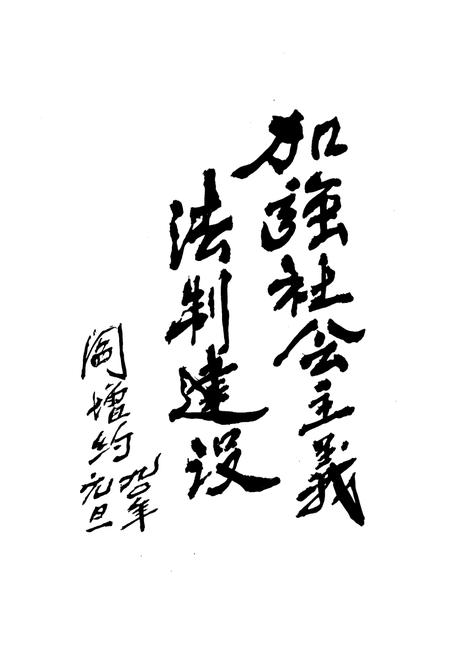 加強社会主義
法制建设
阎增约
九〇年
元旦